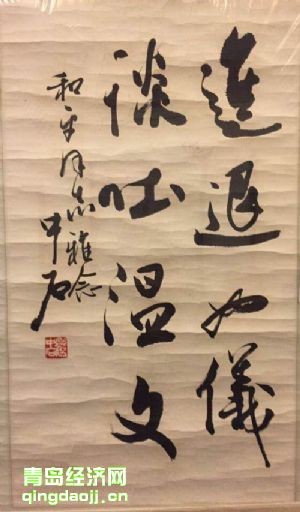 進退如儀
談吐温文
和平同志雅念
中石
青岛经济网
qingdaojj.cn